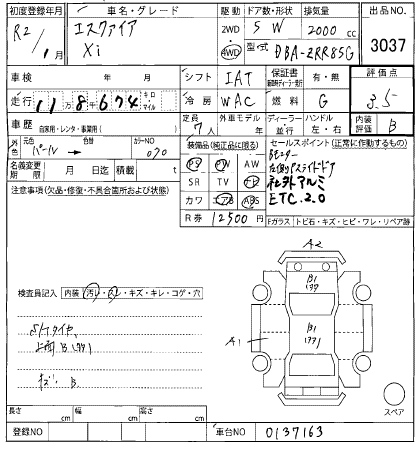 初度登録年月 車名・グレード 駆動 ドア数・形状 排気量 出品NO.
R2/1月 エスクァイア 2WD 5 W 2000cc 3037
Xi 4WD 型式 DBA-2RR85G
車検 年 月 シフト IAT 保証書 有・無 評価点
走行 11万8千674 キロ マイル 冷房 WAC 燃料 G 3.5
車歴 自家用・レンタ・事業用( ) 定員 7人 外車モデル 年 ディーラー 並行 ハンドル 左・右 内装評価 B
外色 元色 パール 色替 カラーNO 070
装備品(純正品に限る) セールスポイント(正常に作動するもの)
名義変更期限 月 日迄 積載 t
PS PW Bモニター
SR TV ナビ 左側パワスライドドア
注意事項(欠品・修復・不具合箇所および状態)
カワ エアB ABS 社外アルミ
R券 12500円 ETC2.0
Fガラス トビ石・キズ・ヒビ・ワレ・リペア跡
A2
検査員記入 内装 汚レ・スレ・キズ・キレ・コゲ・穴
B1
B1
A1
上面B
キズ B
スペア
長さ cm 幅 cm 高さ cm
登録NO 車台NO 0137163